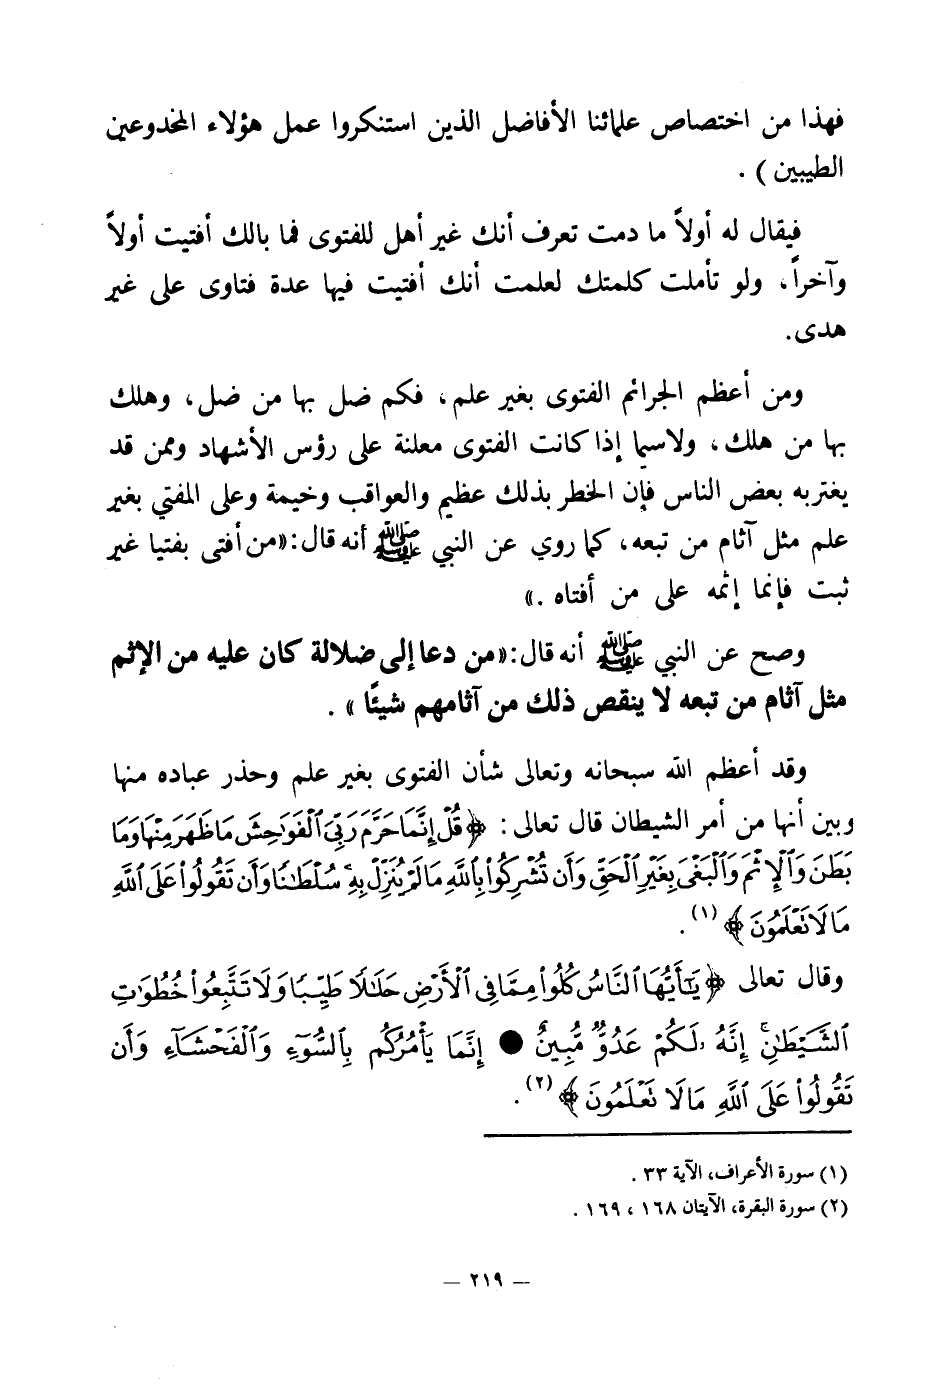 فهذا من اختصاص علمائنا الأفاضل الذين استنكروا عمل هؤلاء المخدوعين
الطيبين ) .
فيقال له أولاً ما دمت تعرف أنك غير أهل للفتوى فما بالك أفتيت أولاً
وآخراً، ولو تأملت كلمتك لعلمت أنك أفتيت فيها عدة فتاوى على غير
هدى.
ومن أعظم الجرائم الفتوى بغير علم، فكم ضل بها من ضل، وهلك
بها من هلك، ولاسيما إذا كانت الفتوى معلنة على رؤس الأشهاد وممن قد
يغتربه بعض الناس فإن الخطر بذلك عظيم والعواقب وخيمة وعلى المفتي بغير
علم مثل آثام من تبعه، كما روي عن النبي ﷺ أنه قال: «من أفتى بفتيا غير
ثبت فإنما إثمه على من أفتاه .»
وصح عن النبي ﷺ أنه قال: «من دعا إلى ضلالة كان عليه من الإثم
مثل آثام من تبعه لا ينقص ذلك من آثامهم شيئًا » .
وقد أعظم الله سبحانه وتعالى شأن الفتوى بغير علم وحذر عباده منها
وبين أنها من أمر الشيطان قال تعالى : ﴿ قُلْ إِنَّمَا حَرَّمَ رَبِّيَ ٱلْفَوَٰحِشَ مَا ظَهَرَ مِنْهَا وَمَا
بَطَنَ وَٱلْإِثْمَ وَٱلْبَغْىَ بِغَيْرِ ٱلْحَقِّ وَأَن تُشْرِكُوا۟ بِٱللَّهِ مَا لَمْ يُنَزِّلْ بِهِۦ سُلْطَٰنًا وَأَن تَقُولُوا۟ عَلَى ٱللَّهِ
مَا لَا تَعْلَمُونَ ﴾ (١) .
وقال تعالى ﴿ يَٰٓأَيُّهَا ٱلنَّاسُ كُلُوا۟ مِمَّا فِى ٱلْأَرْضِ حَلَٰلًا طَيِّبًا وَلَا تَتَّبِعُوا۟ خُطُوَٰتِ
ٱلشَّيْطَٰنِ إِنَّهُۥ لَكُمْ عَدُوٌّ مُّبِينٌ ● إِنَّمَا يَأْمُرُكُم بِٱلسُّوٓءِ وَٱلْفَحْشَآءِ وَأَن
تَقُولُوا۟ عَلَى ٱللَّهِ مَا لَا تَعْلَمُونَ ﴾ (٢) .
(١) سورة الأعراف، الآية ٣٣ .
(٢) سورة البقرة، الآيتان ١٦٨ ، ١٦٩ .
— ٢١٩ —